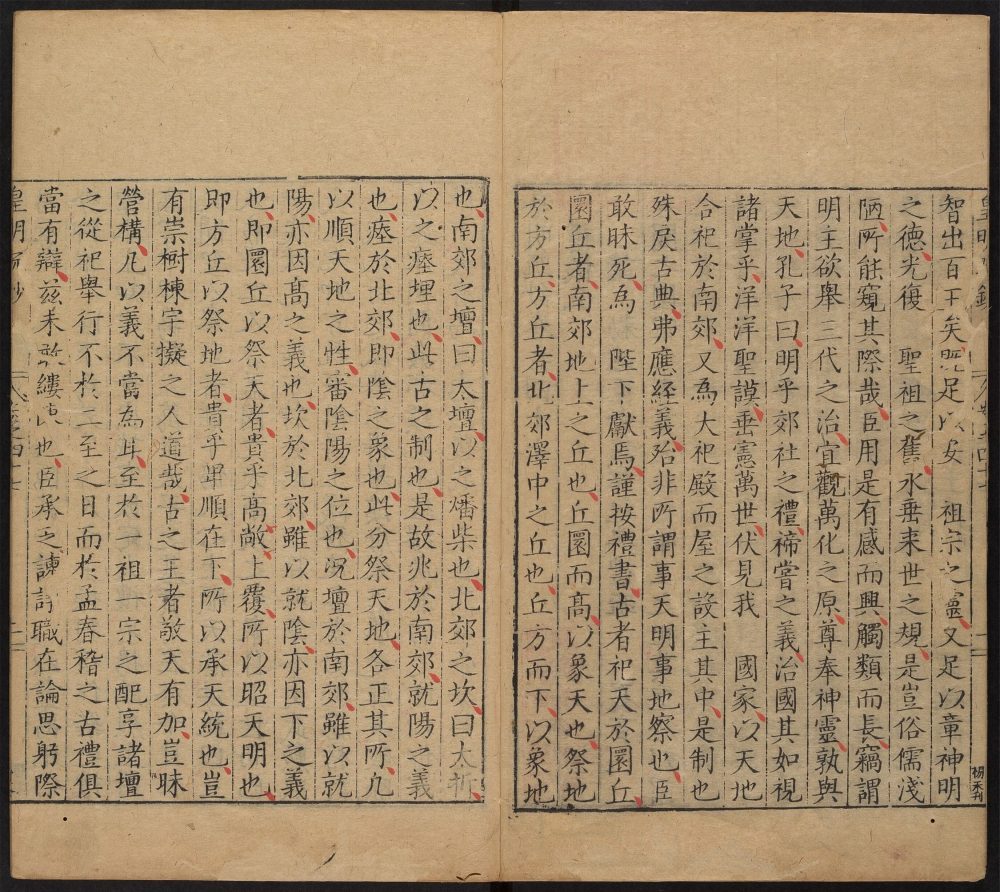 智出百王矣既足以安　祖宗之靈又足以童神明
之德光復　聖祖之舊永垂来世之規是豈俗儒淺
陋所能窺其際哉臣用是有感而興觸類而長竊謂
明主欲舉三代之治宜觀萬化之原尊奉神靈孰與
天地孔子曰明乎郊社之禮禘嘗之義治國其如視
諸掌乎洋洋聖謨垂憲萬世伏見我　國家以天地
合祀於南郊又為大祀殿而屋之設主其中是制也
殊戾古典弗應経義殆非所謂事天明事地察也臣
敢昧死為　陛下獻焉謹按禮書古者祀天於圜丘
圜丘者南郊地上之丘也丘圜而高以象天也祭地
於方丘方丘者北郊澤中之丘也丘方而下以象地
楊末刊
也南郊之壇曰太壇以之燔柴也北郊之坎曰太折
以之瘞埋也此古之制也是故兆於南郊就陽之義
也瘞於北郊即陰之象也此分祭天地各正其所凡
以順天地之性審陰陽之位也况壇於南郊雖以就
陽亦因高之義也坎於北郊雖以就陰亦因下之義
也即圜丘以祭天者貴乎高敞上覆所以昭天明也
即方丘以祭地者貴乎卑順在下所以承天統也豈
有崇樹棟宇擬之人道哉古之王者敬天有加豈昧
營構凡以義不當為耳至於一祖一宗之配享諸壇
之從祀舉行不於二至之日而於孟春稽之古禮俱
當有辯茲未敢縷也臣承之諫職在論思躬際
皇明